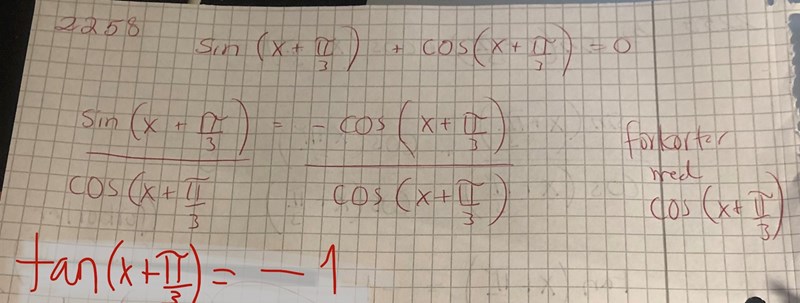 2258
sin (x + π/3) + cos(x + π/3) = 0
sin (x + π/3) / cos(x + π/3 = - cos (x + π/3) / cos (x + π/3)
forkorter
med
cos (x + π/3)
tan(x + π/3) = - 1